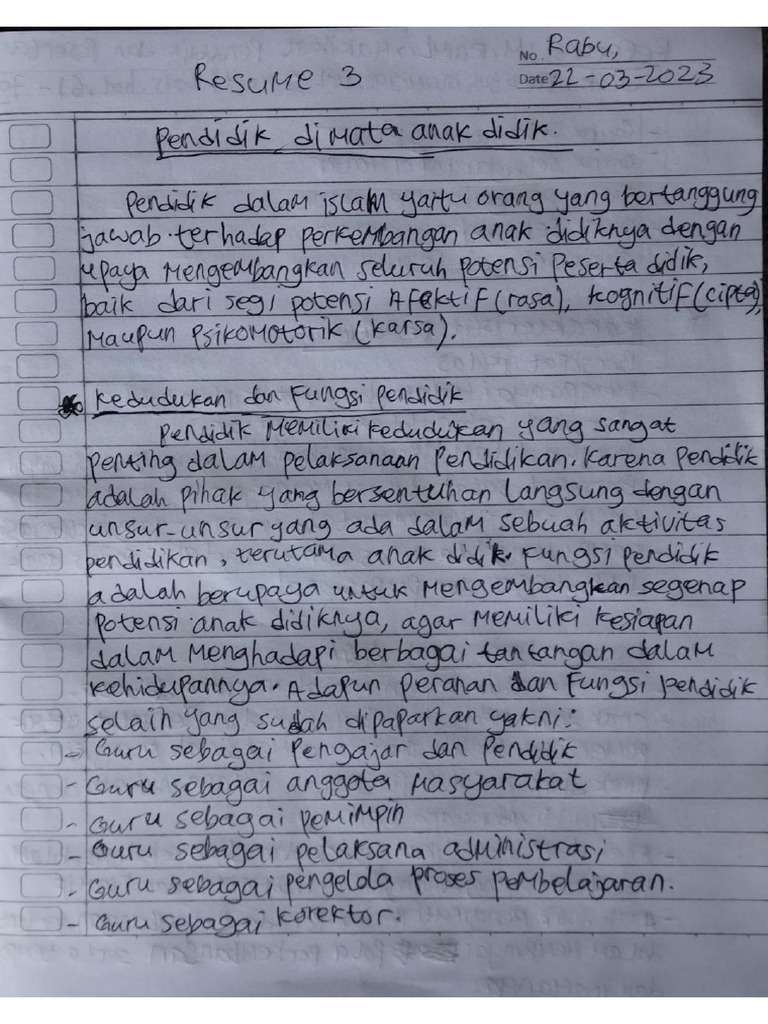 No. Rabu,
Resume 3
Date 22-03-2023
Pendidik dimata anak didik.
Pendidik dalam islam yaitu orang yang bertanggung
jawab terhadap perkembangan anak didiknya dengan
upaya mengembangkan seluruh potensi peserta didik,
baik dari segi potensi Afektif (rasa), kognitif (cipta),
Maupun Psikomotorik (karsa).
Kedudukan dan Fungsi pendidik
Pendidik memiliki kedudukan yang sangat
penting dalam pelaksanaan pendidikan. Karena pendidik
adalah pihak yang bersentuhan langsung dengan
unsur-unsur yang ada dalam sebuah aktivitas
pendidikan, terutama anak didik. Fungsi pendidik
adalah berupaya untuk mengembangkan segenap
potensi anak didiknya, agar memiliki kesiapan
dalam menghadapi berbagai tantangan dalam
kehidupannya. Adapun peranan dan Fungsi pendidik
selain yang sudah dipaparkan yakni:
- Guru sebagai Pengajar dan Pendidik
- Guru sebagai anggota masyarakat
- Guru sebagai pemimpin
- Guru sebagai pelaksana administrasi
- Guru sebagai pengelola proses pembelajaran.
- Guru sebagai korektor.